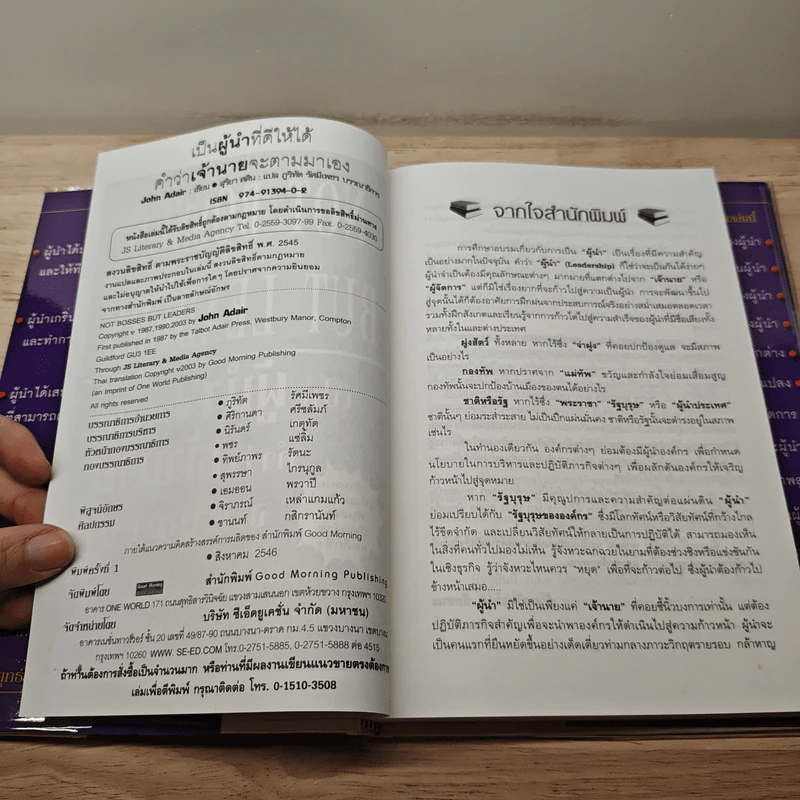 เป็นผู้นำที่ดีให้ได้
คำว่าเจ้านายจะตามมาเอง
John Adair : เขียน • สุริยา ศศิน : แปล ภูริทัต รัศมีเพชร บรรณาธิการ
ISBN 974-91394-0-2
หนังสือเล่มนี้ได้รับลิขสิทธิ์ถูกต้องตามกฎหมาย โดยดำเนินการขอลิขสิทธิ์ผ่านทาง
JS Literary & Media Agency Tel. 0-2559-3097-99 Fax. 0-2559-4030
สงวนลิขสิทธิ์ ตามพระราชบัญญัติลิขสิทธิ์ พ.ศ. 2545
งานแปลและภาพประกอบในเล่มนี้ สงวนลิขสิทธิ์ตามกฎหมาย
และไม่อนุญาตให้นำไปใช้เพื่อการใด ๆ โดยปราศจากความยินยอม
จากทางสำนักพิมพ์ เป็นลายลักษณ์อักษร
NOT BOSSES BUT LEADERS
Copyright v 1987,1990,2003 by John Adair
First published in 1987 by the Talbot Adair Press, Westbury Manor, Compton
Guildford GU3 1EE
Through JS Literary & Media Agency
Thai translation Copyright v2003 by Good Morning Publishing
(an Imprint of One World Publishing)
All rights reserved
บรรณาธิการอำนวยการ • ภูริทัต รัศมีเพชร
บรรณาธิการบริหาร • ศิริกานดา ศรีชลัมภ์
หัวหน้ากองบรรณาธิการ • นิรันดร์ เกตุทัต
กองบรรณาธิการ • พชร แซ่ลิ้ม
• ทิพย์ภาพร รัตนะ
• สุพรรษา ไกรนุกูล
• เอมออน พรวาปี
พิสูจน์อักษร • จิราภรณ์ เหล่าแกมแก้ว
ศิลปกรรม • ชานนท์ กสิกรานันท์
ภายใต้แนวความคิดสร้างสรรค์การผลิตของ สำนักพิมพ์ Good Morning
พิมพ์ครั้งที่ 1 • สิงหาคม 2546
จัดพิมพ์โดย Good Morning สำนักพิมพ์ Good Morning Publishing
อาคาร ONE WORLD 171 ถนนสุทธิสารวินิจฉัย แขวงสามเสนนอก เขตห้วยขวาง กรุงเทพฯ 10320
จัดจำหน่ายโดย บริษัท ซีเอ็ดยูเคชั่น จำกัด (มหาชน)
อาคารเนชั่นทาวเวอร์ ชั้น 20 เลขที่ 49/87-90 ถนนบางนา-ตราด กม.4.5 แขวงบางนา เขตบางนา
กรุงเทพฯ 10260 WWW. SE-ED.COM โทร.0-2751-5885, 0-2751-5888 ต่อ 4515
ถ้าท่านต้องการสั่งซื้อเป็นจำนวนมาก หรือท่านที่มีผลงานเขียนแนวขายตรงต้องการ
เล่มเพื่อตีพิมพ์ กรุณาติดต่อ โทร. 0-1510-3508
จากใจสำนักพิมพ์
การศึกษาอบรมเกี่ยวกับการเป็น "ผู้นำ" เป็นเรื่องที่มีความสำคัญ
เป็นอย่างมากในปัจจุบัน คำว่า "ผู้นำ" (Leadership) ก็ใช่ว่าจะเป็นกันได้ง่ายๆ
ผู้นำจำเป็นต้องมีคุณลักษณะต่างๆ มากมายที่แตกต่างไปจาก "เจ้านาย" หรือ
"ผู้จัดการ" แต่ก็มิใช่เรื่องยากที่จะก้าวไปสู่ความเป็นผู้นำ การจะพัฒนาขึ้นไป
สู่จุดนั้นได้ก็ต้องอาศัยการฝึกฝนจากประสบการณ์จริงอย่างสม่ำเสมอตลอดเวลา
รวมทั้งฝึกสังเกตและเรียนรู้จากการก้าวไต่ไปสู่ความสำเร็จของผู้นำที่มีชื่อเสียงทั้ง
หลายทั้งในและต่างประเทศ
ฝูงสัตว์ ทั้งหลาย หากไร้ซึ่ง "จ่าฝูง" ที่คอยปกป้องดูแล จะมีสภาพ
เป็นอย่างไร
กองทัพ หากปราศจาก "แม่ทัพ" ขวัญและกำลังใจย่อมเสื่อมสูญ
กองทัพนั้นจะปกป้องบ้านเมืองของตนได้อย่างไร
ชาติหรือรัฐ หากไร้ซึ่ง "พระราชา" "รัฐบุรุษ" หรือ "ผู้นำประเทศ"
ชาตินั้นๆ ย่อมระส่ำระสาย ไม่เป็นปึกแผ่นมั่นคง ชาติหรือรัฐนั้นจะดำรงอยู่ในสภาพ
เช่นไร
ในทำนองเดียวกัน องค์กรต่างๆ ย่อมต้องมีผู้นำองค์กร เพื่อกำหนด
นโยบายในการบริหารและปฏิบัติภารกิจต่างๆ เพื่อผลักดันองค์กรให้เจริญ
ก้าวหน้าไปสู่จุดหมาย
หาก "รัฐบุรุษ" มีคุณูปการและความสำคัญต่อแผ่นดิน "ผู้นำ"
ย่อมเปรียบได้กับ "รัฐบุรุษขององค์กร" ซึ่งมีโลกทัศน์หรือวิสัยทัศน์ที่กว้างไกล
ไร้ขีดจำกัด และเปลี่ยนวิสัยทัศน์ให้กลายเป็นการปฏิบัติได้ สามารถมองเห็น
ในสิ่งที่คนทั่วไปมองไม่เห็น รู้จังหวะฉกฉวยในยามที่ต้องช่วงชิงหรือแข่งขันกัน
ในเชิงธุรกิจ รู้ว่าจังหวะไหนควร "หยุด" เพื่อที่จะก้าวต่อไป ซึ่งผู้นำต้องก้าวไป
ข้างหน้าเสมอ.....
"ผู้นำ" มิใช่เป็นเพียงแค่ "เจ้านาย" ที่คอยชี้นิ้วบงการเท่านั้น แต่ต้อง
ปฏิบัติภารกิจสำคัญเพื่อจะนำพาองค์กรให้ดำเนินไปสู่ความก้าวหน้า ผู้นำจะ
เป็นคนแรกที่ยืนหยัดขึ้นอย่างเด็ดเดี่ยวท่ามกลางภาวะวิกฤตรายรอบ กล้าหาญ